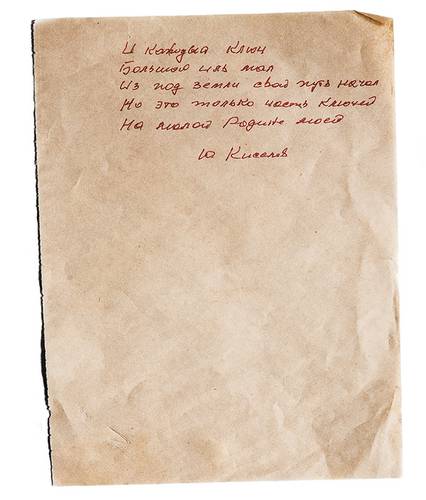 И каждый ключ
Большой иль мал
Из под земли свой путь начал
Но это только часть ключей
На малой Родине моей
Ю Киселёв